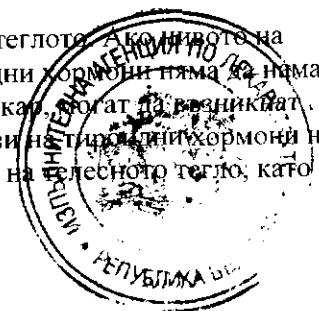 теглото. Ако нивото на
дни хормони няма да нама
кар, могат да възникнат
и на тироидни хормони н
на телесното тегло, като
ИЗПЪЛНИТЕЛНА АГЕНЦИЯ ПО ЛЕКАРСТ
РЕПУБЛИКА БЪ